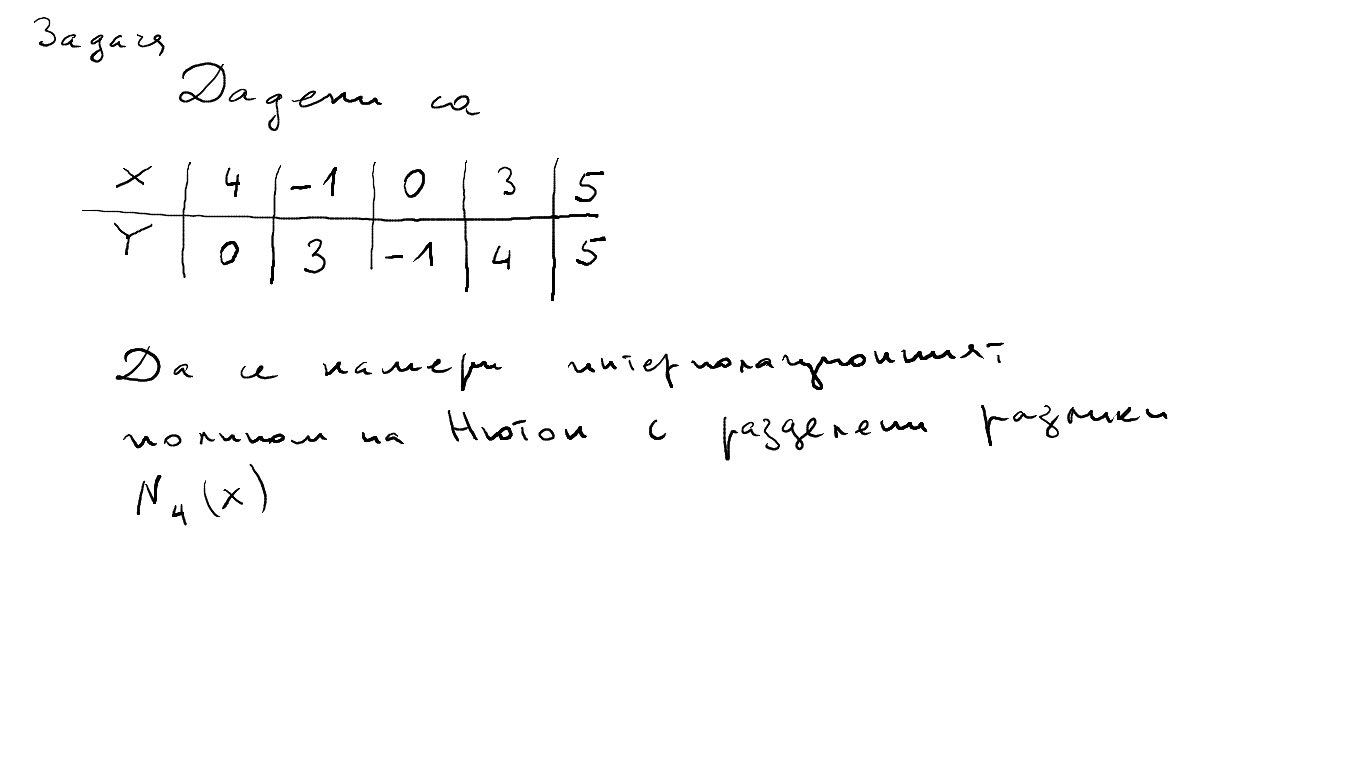 Задача
Дадени са
X | 4 | -1 | 0 | 3 | 5
Y | 0 | 3 | -1 | 4 | 5
Да се намери интерполационният
полином на Нютон с разделени разлики
N₄(x)